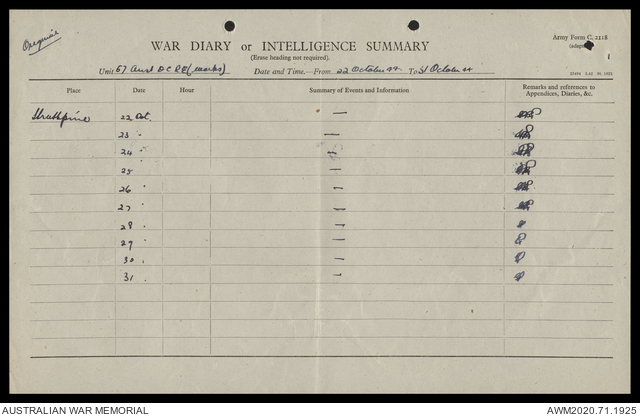 Original
Army Form C. 2118
WAR DIARY or INTELLIGENCE SUMMARY
(Erase heading not required).
Unit 57 Aust D C R E (Works) Date and Time.—From 22 October 44 To 31 October 44
Place Date Hour Summary of Events and Information Remarks and references to Appendices, Diaries, &c.
Strathpine 22 Oct. —
23 " —
24 " —
25 " —
26 " —
27 " —
28 " —
29 " —
30 " —
31 " —
AUSTRALIAN WAR MEMORIAL AWM2020.71.1925